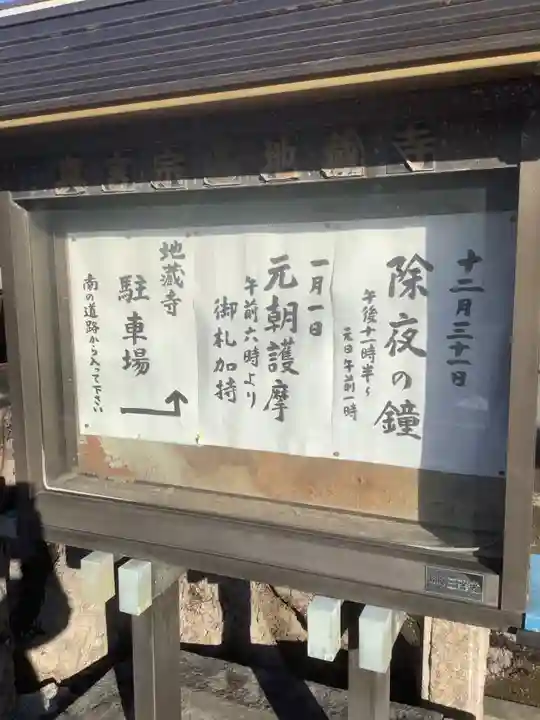 真言宗 地蔵寺
十二月三十一日
除夜の鐘
午後十一時半〜
元日午前一時
一月一日
元朝護摩
午前六時より
御札加持
地蔵寺
駐車場
南の道路から入って下さい